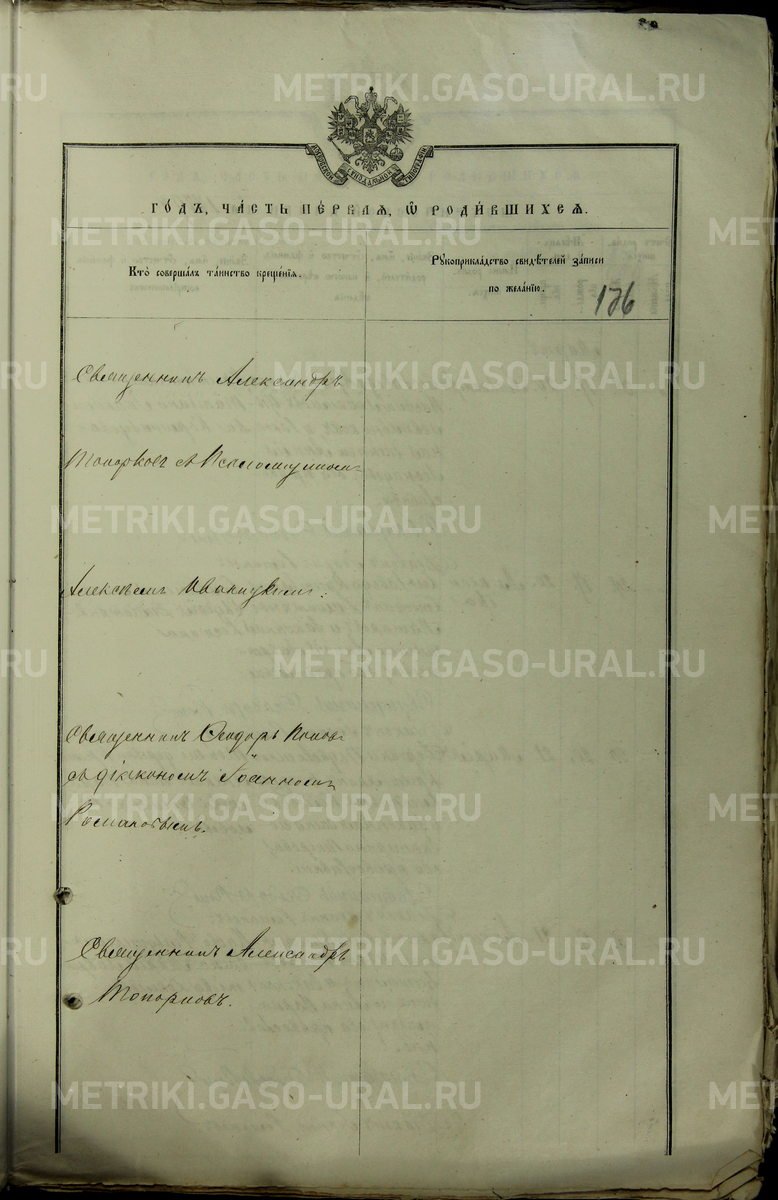 METRIKI.GASO-URAL.RU
ГО́ДЪ, ЧА́СТЬ ПЕ́РВАЯ, Ѡ РОДИ́ВШИХСЯ.
Кто̀ совершалъ та́инство креще́нія.
Рукоприкла́дство свидѣ́телей за́писи
по жела́нію.
136
Священникъ Александръ
Топорковъ с Псаломщикомъ
Алексѣемъ Иваницкимъ.
Священникъ Ѳеодоръ Попов
съ діакономъ Іоанномъ
Священникъ Александръ
Топорковъ.